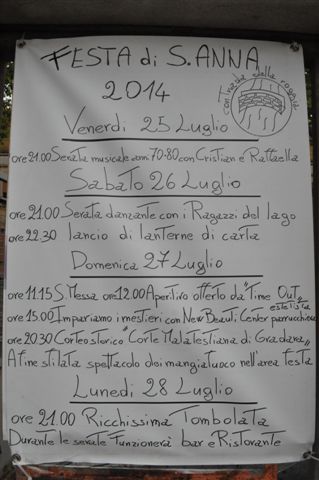 FESTA di S. ANNA
2014
contrada della roggia
Venerdi 25 Luglio
ore 21.00 Serata musicale anni 70-80 con Cristian e Raffaella
Sabato 26 Luglio
ore 21.00 Serata danzante con i Ragazzi del lago
ore 22.30 lancio di lanterne di carta
Domenica 27 Luglio
ore 11.15 S. Messa ore 12.00 Aperitivo offerto da "Time Out"
estetista
ore 15.00 Impariamo i mestieri con New Beauti Center parrucchiera
ore 20.30 Corteo storico "Corte Malatestiana di Gradara"
A fine sfilata spettacolo dei mangiafuoco nell'area festa
Lunedi 28 Luglio
ore 21.00 Ricchissima Tombolata
Durante le serate funzionerà bar e Ristorante